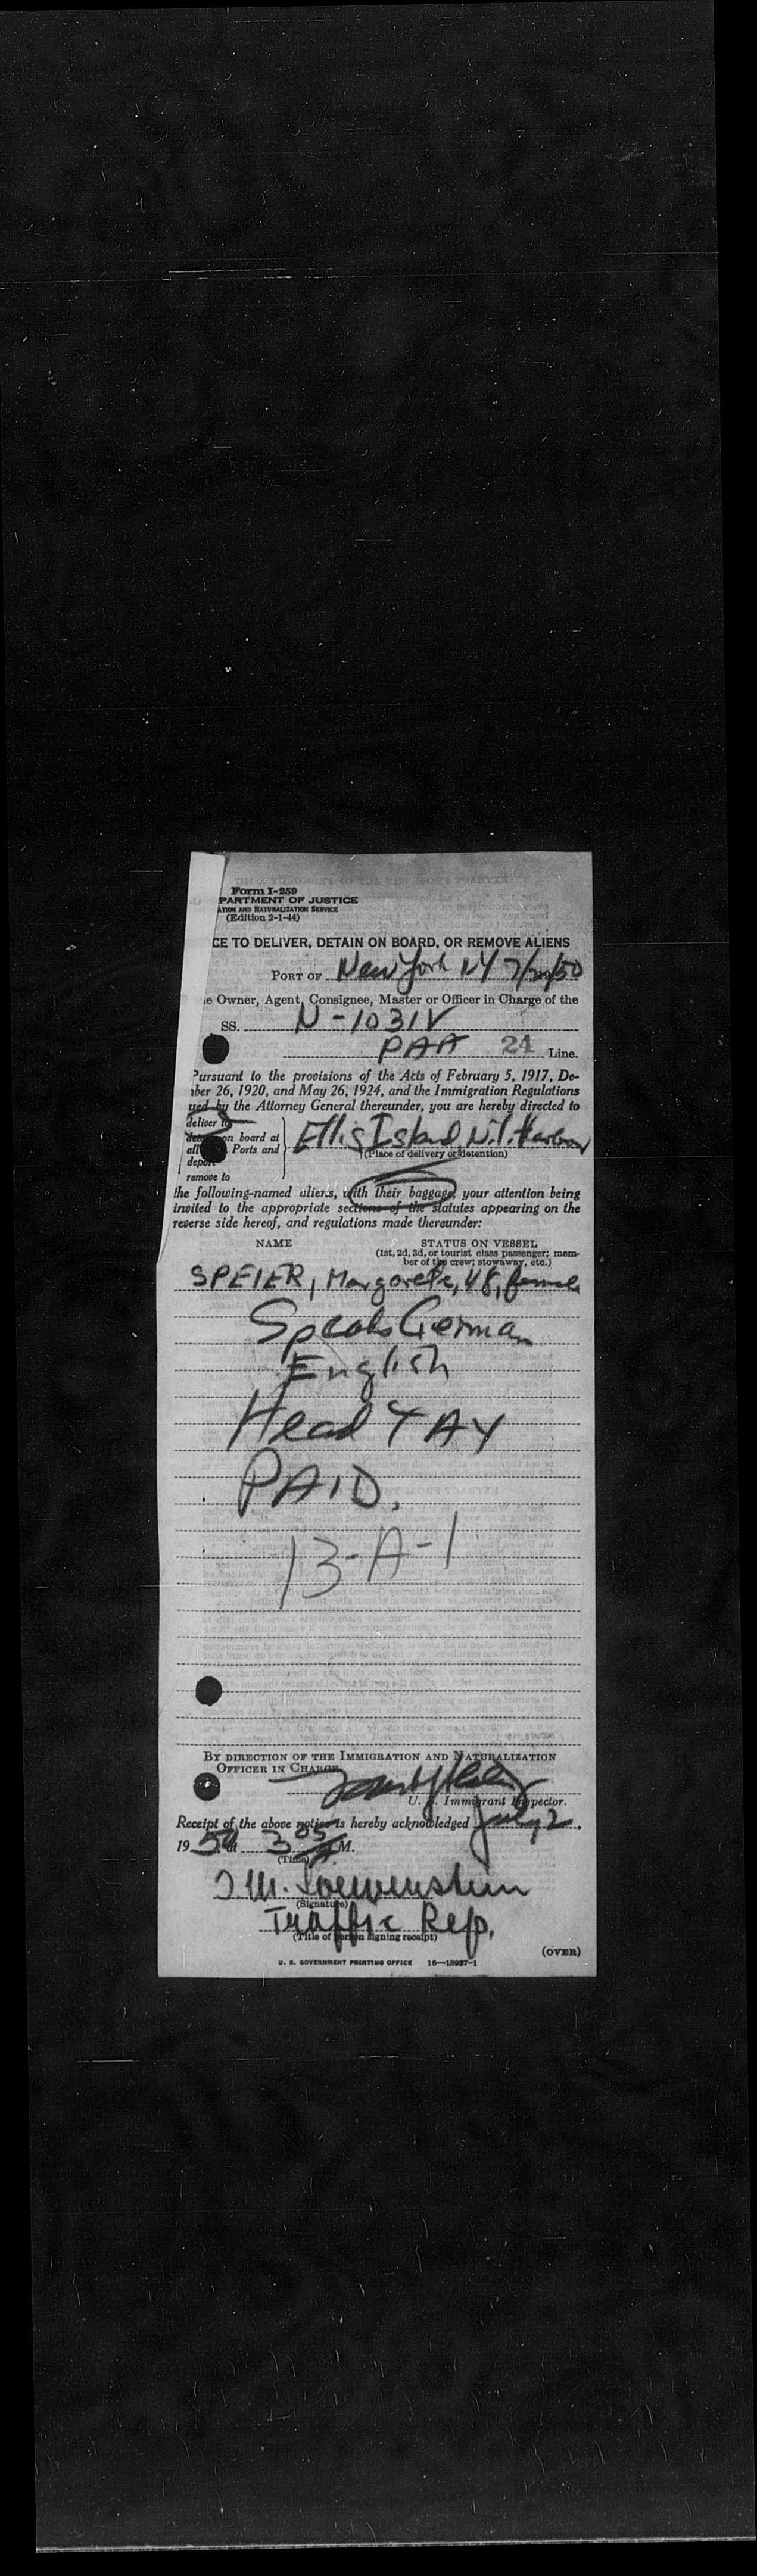 Form I-259
PARTMENT OF JUSTICE
ATION AND NATURALIZATION SERVICE
(Edition 2-1-44)
CE TO DELIVER, DETAIN ON BOARD, OR REMOVE ALIENS
PORT OF New York NY 7/2/50
e Owner, Agent, Consignee, Master or Officer in Charge of the
SS. N-1031V
PAA 24 Line.
Pursuant to the provisions of the Acts of February 5, 1917, De-
ber 26, 1920, and May 26, 1924, and the Immigration Regulations
ued by the Attorney General thereunder, you are hereby directed to
deliver to
on board at
all Ports and
deport
remove to
Ellis Island, N.Y. Harbor
(Place of delivery or detention)
the following-named aliens, with their baggage, your attention being
invited to the appropriate sections of the statutes appearing on the
reverse side hereof, and regulations made thereunder:
NAME STATUS ON VESSEL
(1st, 2d, 3d, or tourist class passenger; mem-
ber of the crew; stowaway, etc.)
SPEIER, Margarete, 48, female
Speaks German
English
Head TAX
PAID.
13-A-1
BY DIRECTION OF THE IMMIGRATION AND NATURALIZATION
OFFICER IN CHARGE
U. S. Immigrant Inspector.
Receipt of the above notice is hereby acknowledged July 2,
1950 at 3 05 M.
(Time)
M. Loewenstein
(Signature)
Traffic Rep.
(Title of person signing receipt)
(OVER)
U. S. GOVERNMENT PRINTING OFFICE 16—18027-1